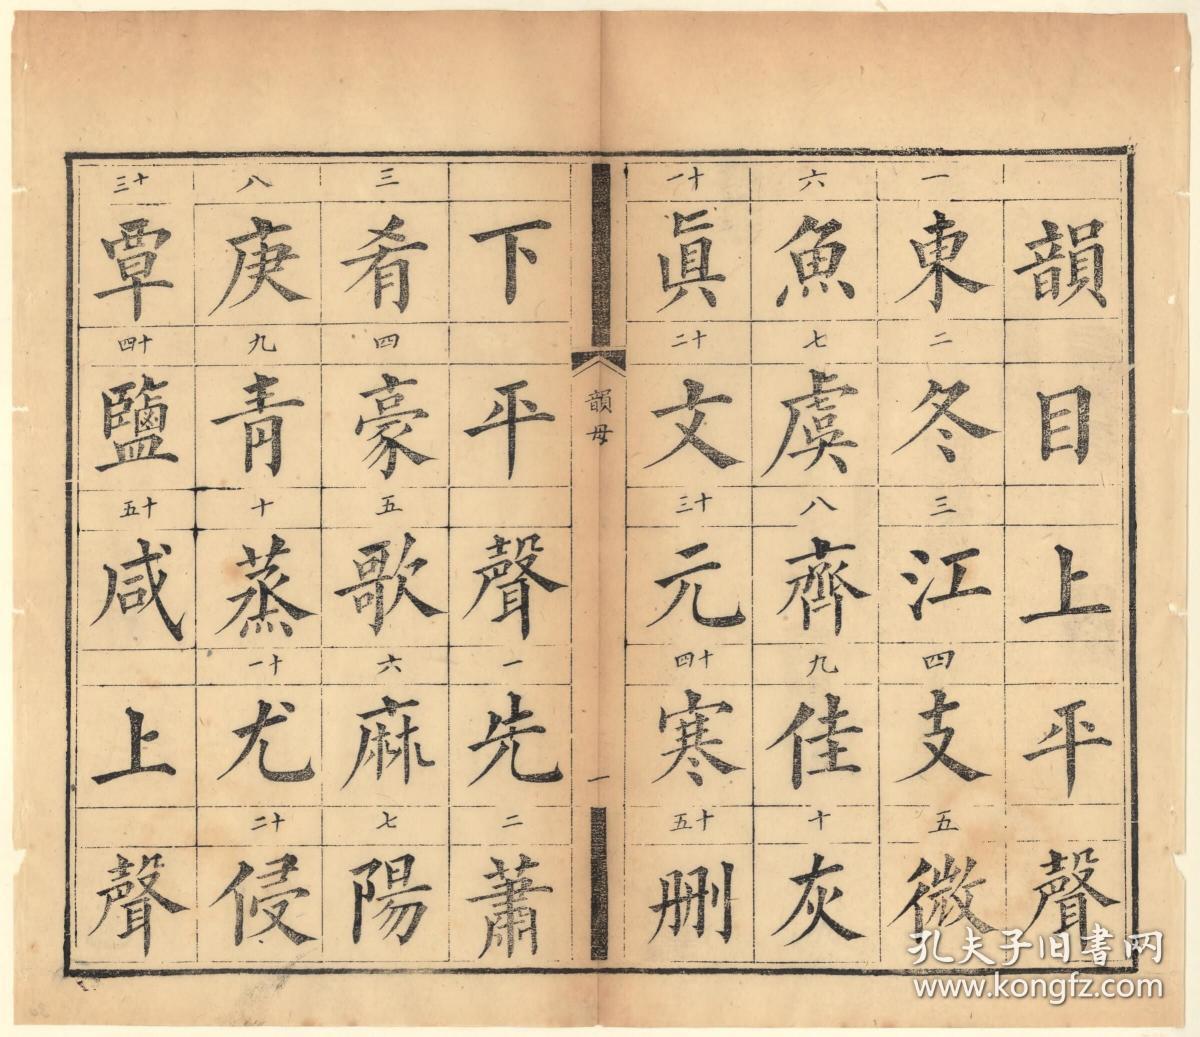 韻目上平聲
一東二冬三江四支五微
六魚七虞八齊九佳十灰
十一眞十二文十三元十四寒十五刪
韻母 一
下平聲一先二蕭
三肴四豪五歌六麻七陽
八庚九青十蒸十一尤十二侵
十三覃十四鹽十五咸上聲
孔夫子旧書网
www.kongfz.com